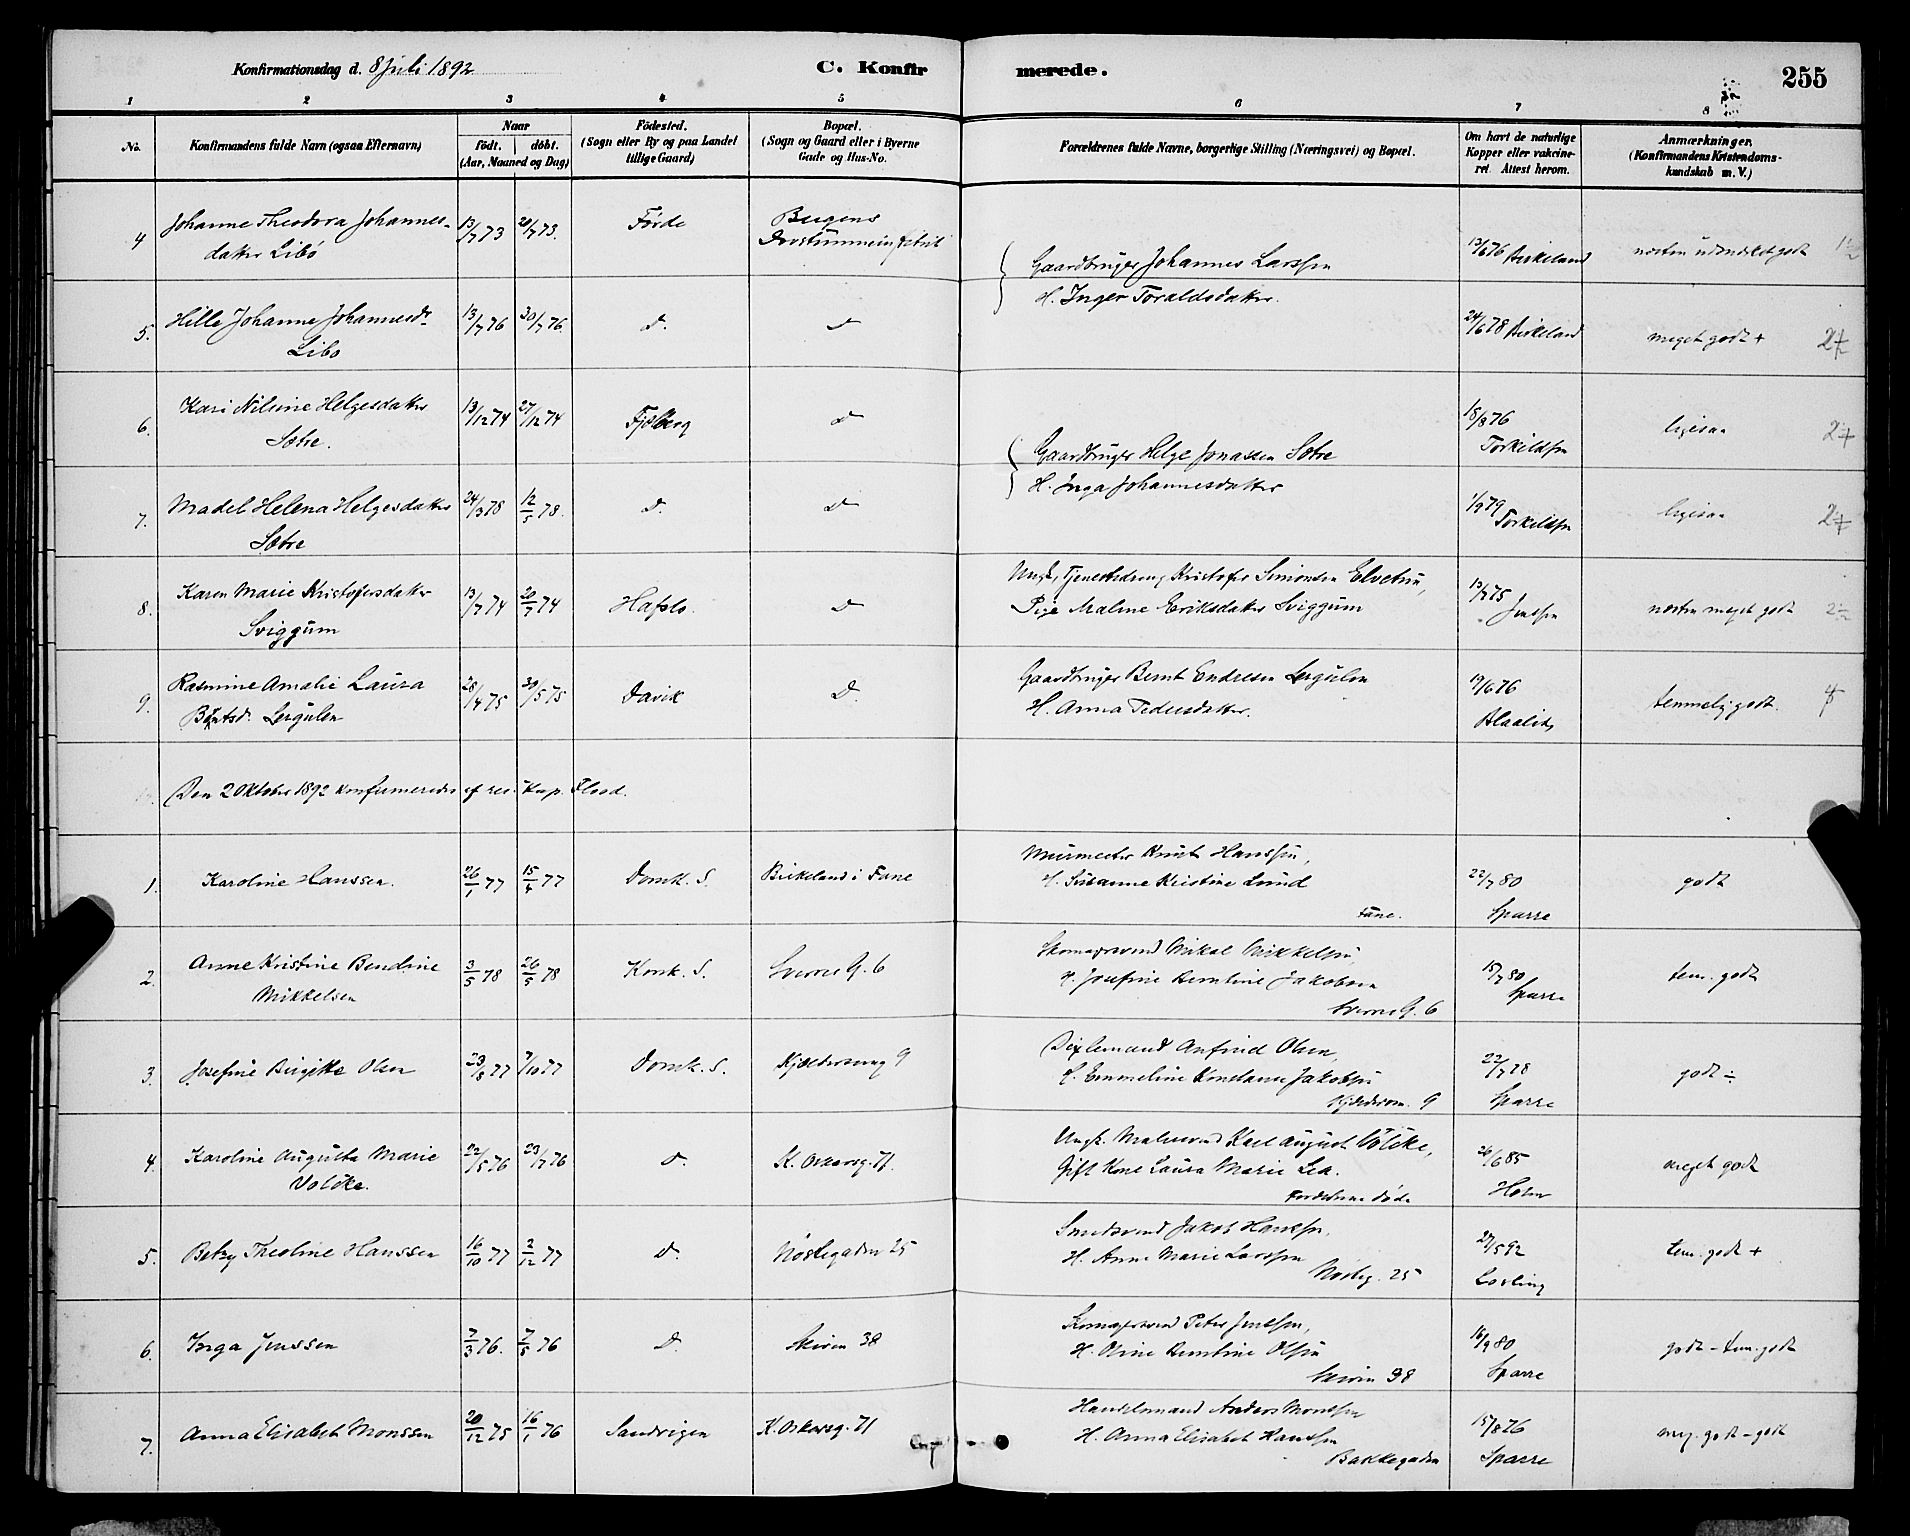 Konfirmationsdag d. 8 Juli 1892
C. Konfirmerede.
255
1 2 3 4 5 6 7 8
No.
Konfirmandens fulde Navn (ogsaa Efternavn)
Naar
födt. döbt.
(Aar, Maaned og Dag)
Födested.
(Sogn eller By og paa Landet
tillige Gaard)
Bopæl.
(Sogn og Gaard eller i Byerne
Gade og Hus-No.
Forældrenes fulde Navne, borgerlige Stilling (Næringsvei) og Bopæl.
Om havt de naturlige
Kopper eller vakcine-
ret Attest herom.
Anmærkninger.
(Konfirmandens Kristendoms-
kundskab m. V.)
4 Johanne Theodora Johannes-
datter Libø
13/7 73 20/7 73. Förde Bergens
Gaardbruger Johannes Larssen
H. Inger Toraldsdatter.
13/6 76 Birkeland
næsten udmærket godt
5. Hille Johanne Johannesdr
Libø
13/7 76 30/7 76. D. D
24/6 78 Birkeland
meget godt +
6. Kari Nilsine Helgesdatter
Sætre.
13/12 74 27/12 74 Fjelberg D
Gaardbruger Helge Jonassen Sætre
H. Inga Johannesdatter
18/8 76
Torkildsen
ligesaa
7. Madel Helena Helgesdatter
Sætre
24/3 78 12/5 78. D. D
1/9 79 Torkildsen
ligesaa
8. Karen Marie Kristofersdatter
Sviggum
13/7 74 20/7 74 Hafslo. D
Ungk. Tjenestedreng Kristofer Simonsen Elvetun,
Pige Malene Eriksdatter Sviggum
13/7 75
Jenssen
næsten meget godt
9. Rasmine Amalie Laura
Berntsdr Lergulen
28/4 75 30/5 75 Davik D.
Gaardbruger Bernt Endresen Lergulen
H. Anna Pedersdatter.
19/6 76
temmelig godt.
Den 2 Oktober 1892 konfirmeredes af res. Kap. Flood.
1. Karoline Hanssen.
26/1 77 15/4 77 Domk. S. Birkeland i Fane
Murmester Knut Hanssen,
H. Susanne Kristine Lund
Fane.
22/7 80
Sparre
godt
2. Anne Kristine Bendine
Mikkelsen
3/5 78 26/5 78 Korsk. S. Sverres G. 6
Skomagersvend Mikal Mikkelsen,
H. Josefine Berntine Jakobsen
Sverres G. 6
15/7 80
Sparre
tem. godt
3. Josefine Birgitte Olsen
23/8 77 7/10 77 Domk. S. Kjeldersmug 9
Bixlemand Anfind Olsen,
H. Emmeline Konstanse Jakobsen
9
22/7 78
Sparre
godt ÷
4. Karoline Augusta Marie
Völcke.
22/5 76 23/7 76 D. K. Oskarsg. 71.
Ungk. Malersvend Karl August Völcke,
Gift Kone Laura Marie Lea.
Forældrene døde
26/6 85
Holm
meget godt
5. Betzy Theoline Hanssen
16/10 77 2/12 77 D. Nöstegaden 25
Smedsvend Jakob Hanssen,
H. Anne Marie Larssen
Nøsteg. 25
27/5 92
Lovling
tem. godt +
6. Inga Jenssen
7/3 76. 7/5 76 D. Skiven 38
Skomagersvend Peter Jenssen,
H. Oline Berntine Olsen
Skiven 38
16/9 80
Sparre
godt - tem. godt
7. Anna Elisabet Monssen
20/12 75 16/1 76 Sandvigen K. Oskarsg. 71
Handelsmand Anders Monssen
H. Anna Elisabet Hanssen
Bakkegaden
15/8 76
Sparre
meg. godt - godt